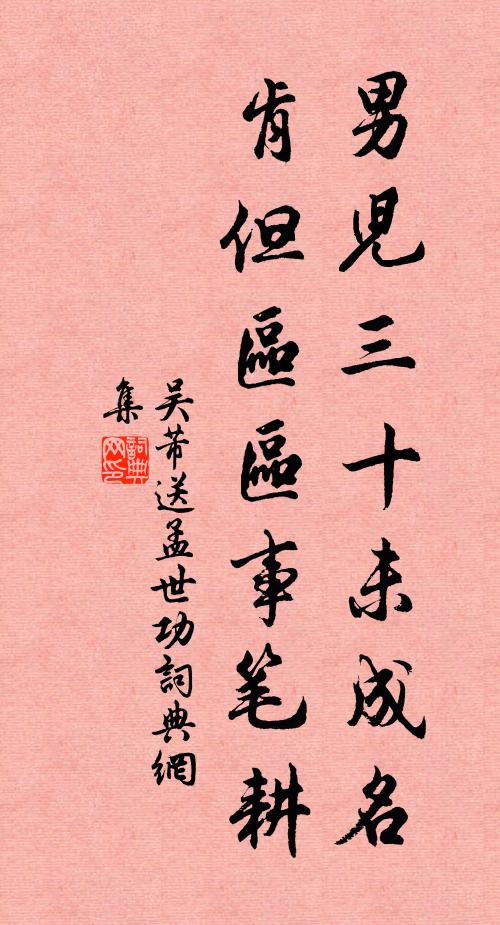 男児三十未成名
肯但區區事笔耕
吴芾送孟世功詞典網
集
詞典网印